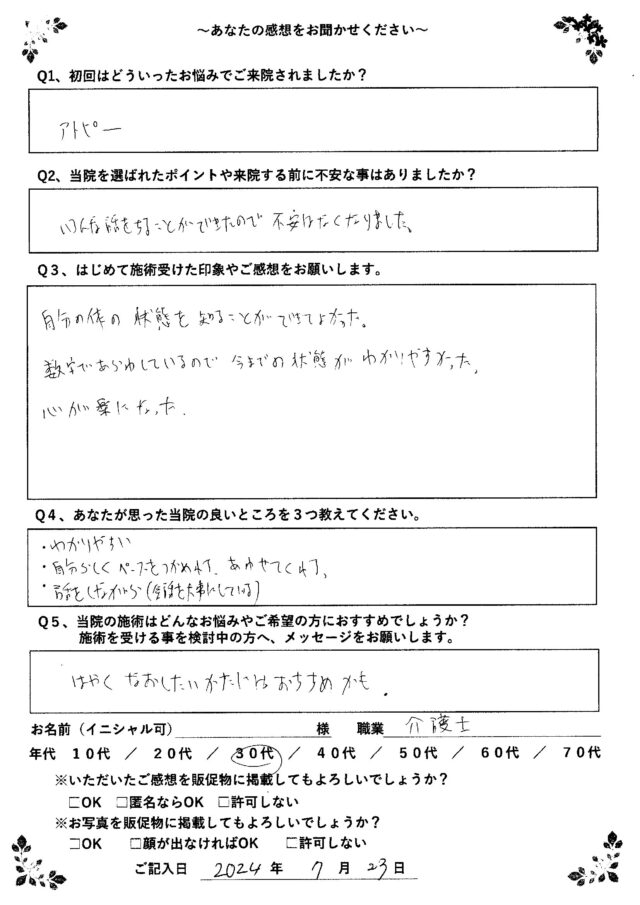 ～あなたの感想をお聞かせください～
Q1、初回はどういったお悩みでご来院されましたか？
アトピー
Q2、当院を選ばれたポイントや来院する前に不安な事はありましたか？
いろんな話をすることができたので 不安はなくなりました。
Q３、はじめて施術受けた印象やご感想をお願いします。
自分の体の 状態を 知ることができてよかった。
数字であらわしているので 今までの状態が わかりやすかった。
心が楽になった.
Q４、あなたが思った当院の良いところを３つ教えてください。
・わかりやすい
・自分らしく ペースをつかめれば あわせてくれる。
・話をしながら(会話を大事にしている)
Q５、当院の施術はどんなお悩みやご希望の方におすすめでしょうか？
施術を受ける事を検討中の方へ、メッセージをお願いします。
はやく なおしたいかたには おすすめ かも.
お名前（イニシャル可） 様 職業 介護士
年代 １０代 ／ ２０代 ／ ３０代 ／ ４０代 ／ ５０代 ／ ６０代 ／ ７０代
※いただいたご感想を販促物に掲載してもよろしいでしょうか？
□OK □匿名ならOK □許可しない
※お写真を販促物に掲載してもよろしいでしょうか？
□OK □顔が出なければOK □許可しない
ご記入日 2024 年 7 月 23 日